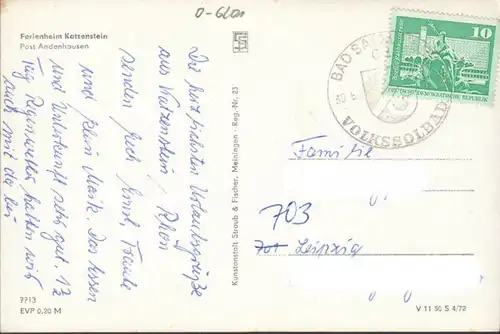 O-6201
Ferienheim Katzenstein
Post Andenhausen
Die herzlichsten Urlaubsgrüße
aus Katzenstein / Rhön
senden Euch Ernst, Traude
und klein Maik. Das Essen
und Unterkunft sehr gut. 12
Tag Regenwetter hatten wir
auch mit dabei
7713
EVP 0,20 M
Kunstanstalt Straub & Fischer, Meiningen - Reg.-Nr. 23
BAD SA
VOLKSSOLBAD
10
DEUTSCHE DEMOKRATISCHE REPUBLIK
Familie
703
701 Leipzig
V 11 50 S 4/72